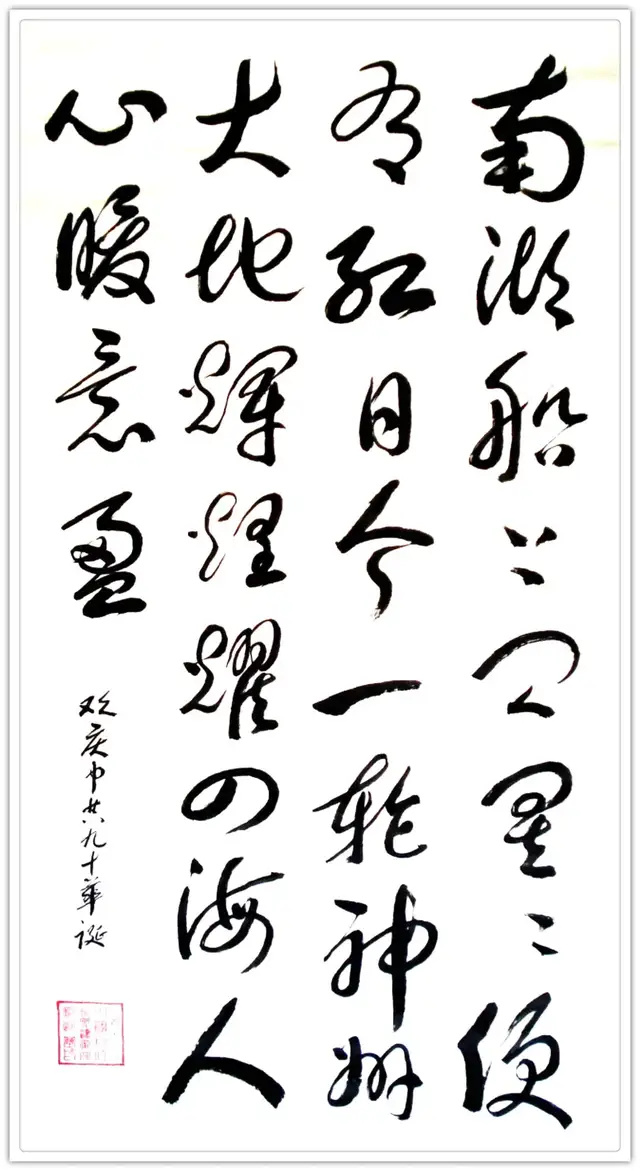 南湖船上闪星星便
有红日今一轮神州
大地辉煌耀四海人
心暖意盈
欢庆中共九十华诞